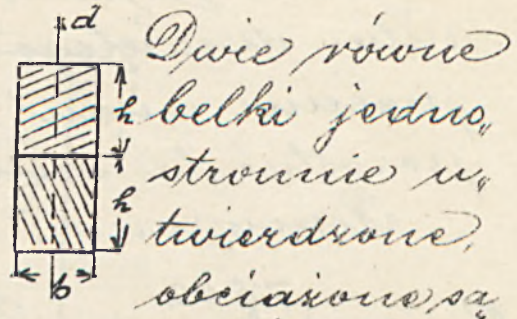 d
Dwie równe
h belki jedno„
stronnie u„
h twierdzone,
b obciążone są